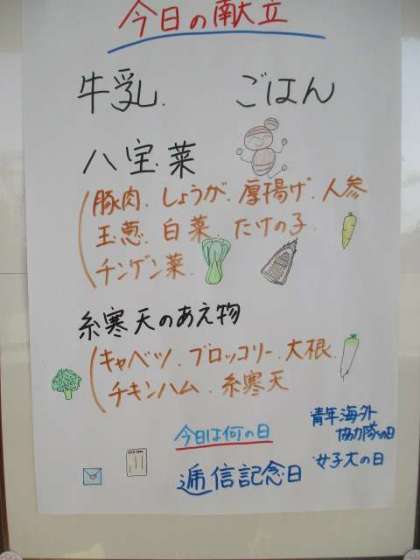 今日の献立
牛乳. ごはん
八宝菜
豚肉. しょうが. 厚揚げ. 人参
玉葱. 白菜. たけの子.
チンゲン菜
糸寒天のあえ物
キャベツ. ブロッコリー. 大根.
チキンハム. 糸寒天
今日は何の日
青年海外
協力隊の日
逓信記念日
女子大の日